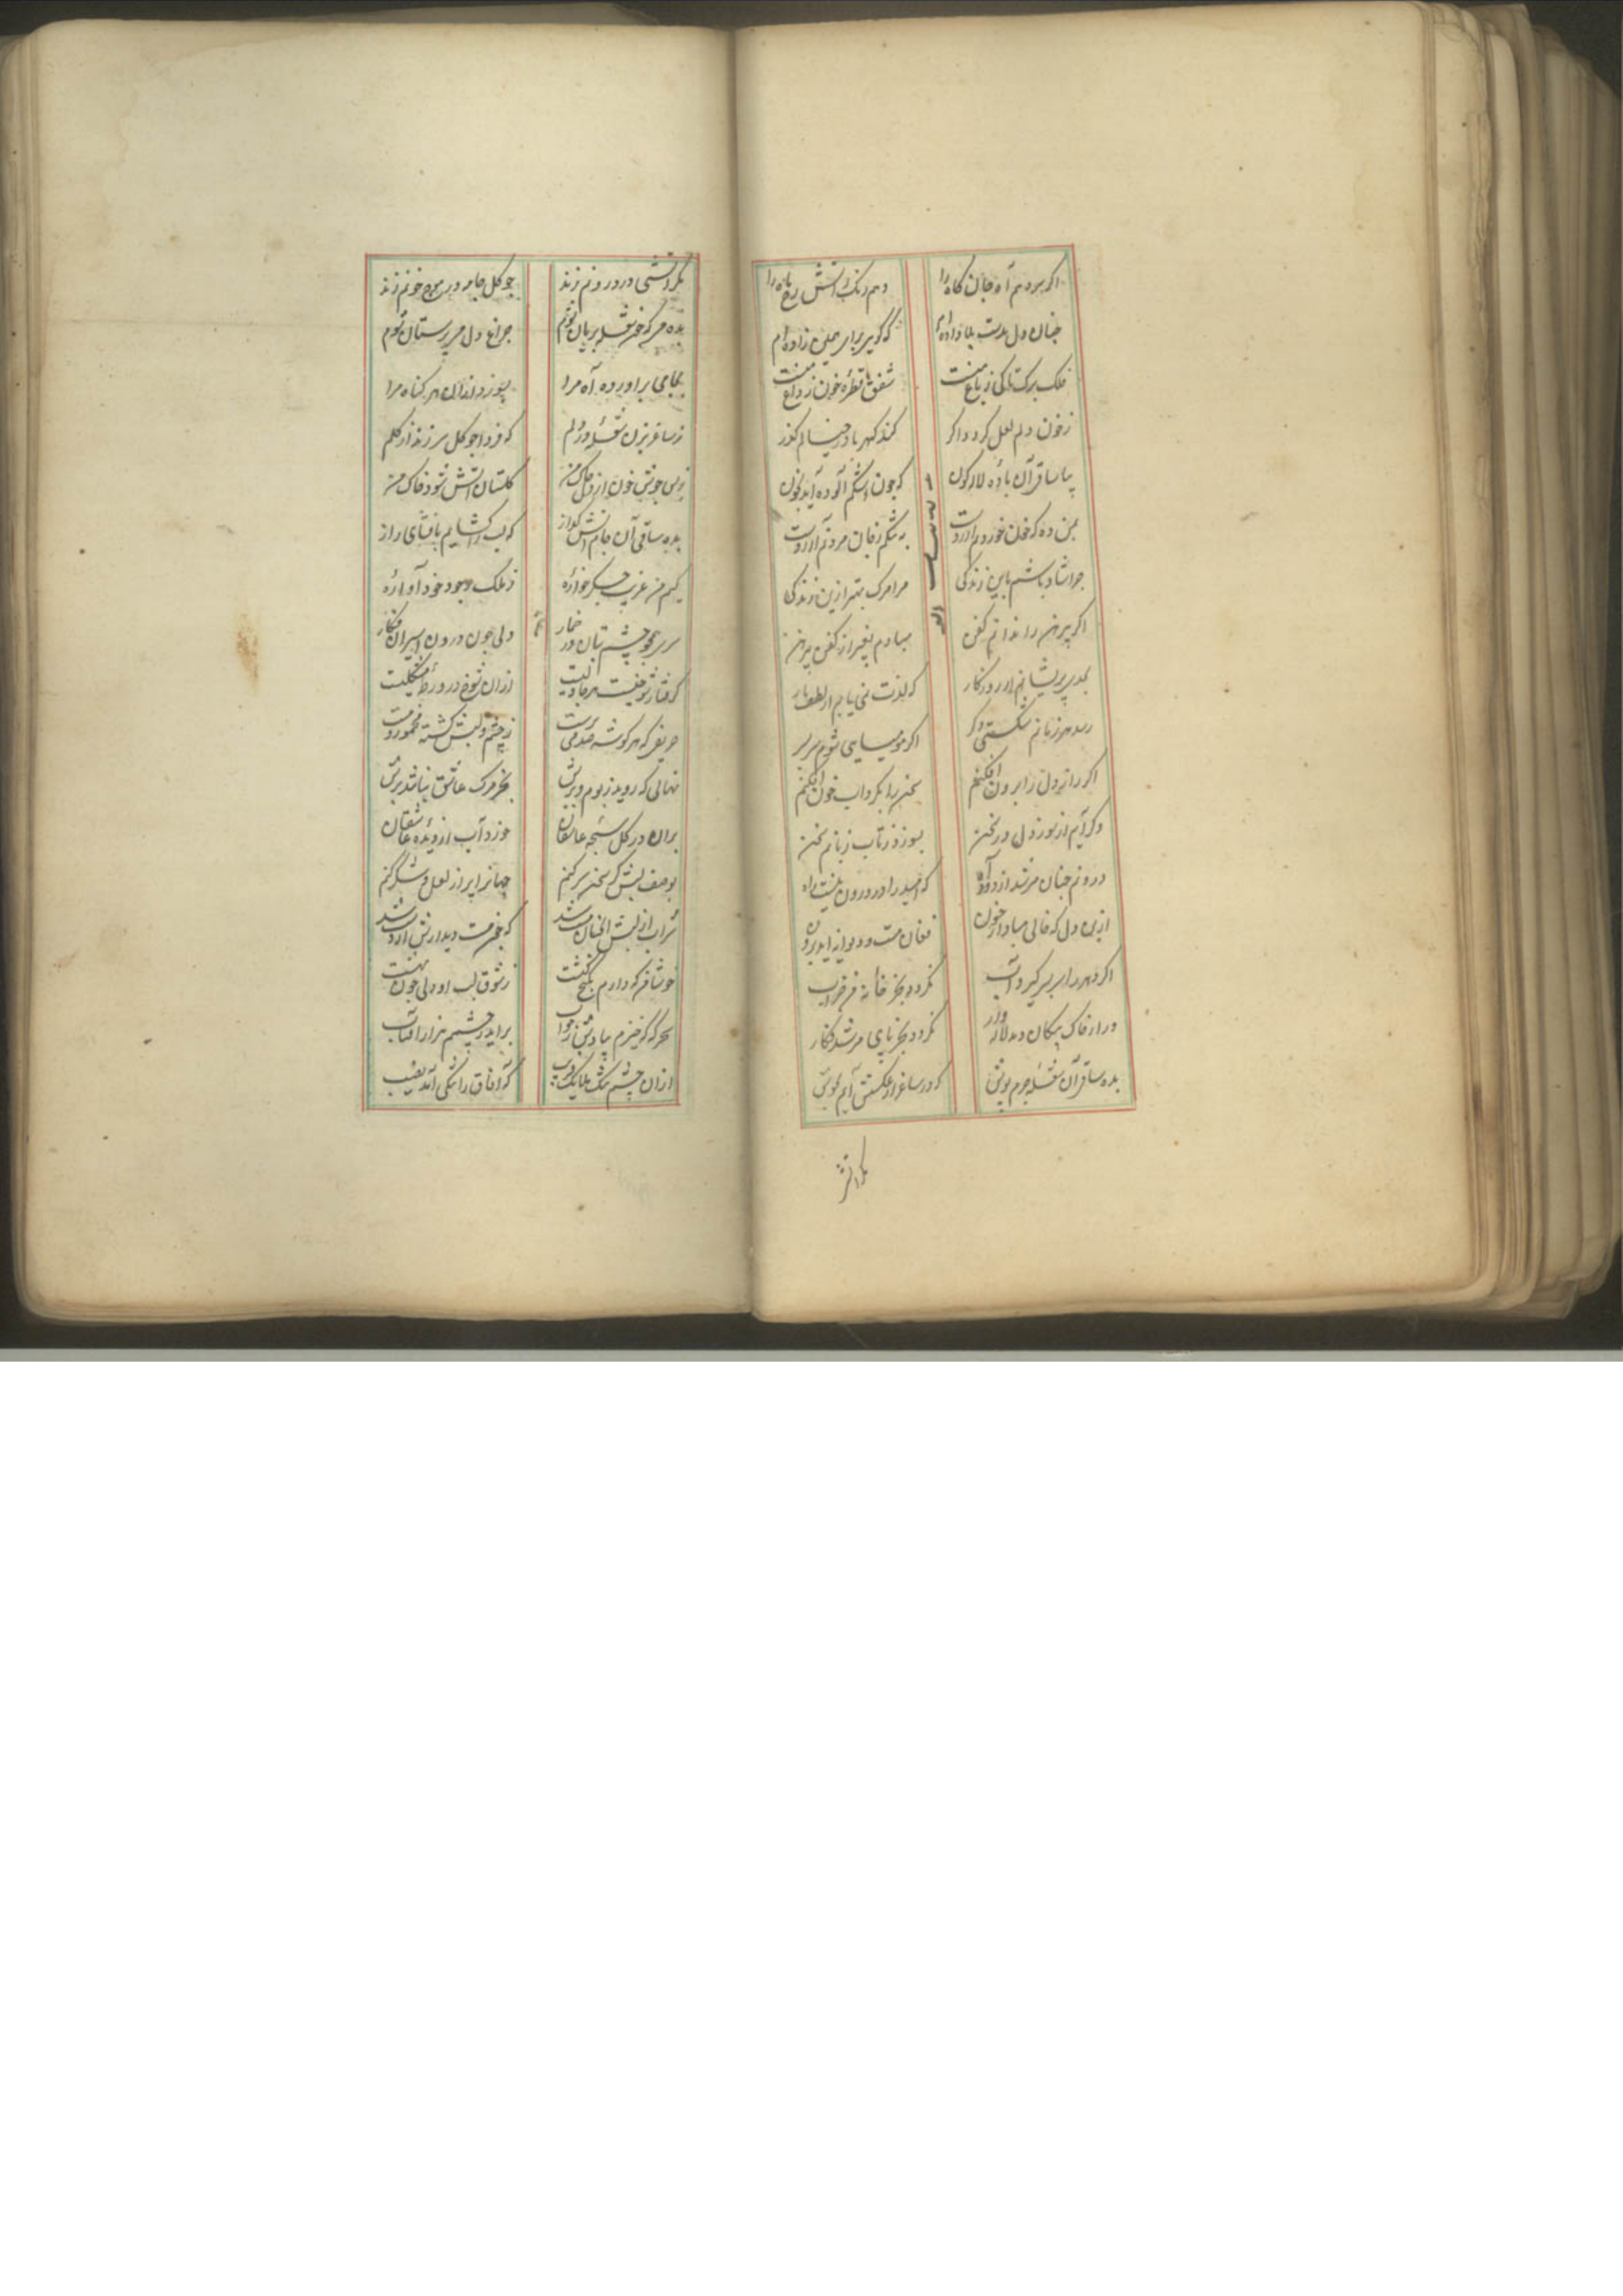 اگر بردهم آه جان کاه را دهم رنگ آتش رخ ماه را
چنان دل بدست بلا داده‌ام که گویی برای همین زاده‌ام
فلک برگ تاکی ز باغ منست شفق قطره خون ز داغ منست
ز خون دلم لعل گردد اگر کند کهربا در خیالم گذر
بیا ساقی آن باده لاله گون که چون اشکم آلوده آید بخون
بمن ده که خون خوردنم آرزوست به شکم زفان مردنم آرزوست
چرا شاد باشم باین زندگی مرا مرگ بهتر ازین زندگی
اگر پیرهن را ندانم کفن مبادم بغیر از کفن پیرهن
پریشانم از روزگار که لذت نمی یابم از لطف یار
رسد هر زمانم شکستی دگر اگر مومیایی شوم سربسر
اگر راز دل را برون افکنم سخن را بگرداب خون افکنم
وگر آیم از سوز دل در سخن بسوزد ز تاب زبانم سخن
درونم چنان پر شد از دود آه که امید را در درون نیست راه
ازین دل که خالی مباد از خون فغان مست و دیوانه آید برون
اگر دهر را سربسر گیرد آب نگردد بجز خانه من خراب
ور از خاک پیکان دمد لاله وار نگردد بجز پای من زو فگار
بده ساقی آن شعله جرم پوش که در ساغر از عکسش آیم بجوش
بگر آتش
بگر آتشی در درونم زند چو گل جامه در موج خونم زند
بده می که خضر شعله بریان شوم چراغ دل می پرستان شوم
بجامی برآور ده آه مرا بسوزد اندران هر گناه مرا
ز ساغر بزن شعله در دلم که فردا چو گل سر زند از گلم
بسی جوشد خون از دل خاک من گلستان آتش شود خاک من
بده ساقی آن جام آتش گداز که لب را گشایم بافشای راز
کیم من غریب جگر خواره ز ملک وجود خود آواره
سری همچو چشم بتان در خمار دلی چون درون اسیران فگار
گرفتار شوخیست هرجا دلیست ازان شوخ در ورطه مشکلیست
حریفی که هر گوشه صد می پرست ز چشم و لبش گشته مخمور و مست
نهالی که روید ز بوم و برش بجز مرگ عاشق نباشد برش
بران در گل سبحه عاشقان خورد آب از دیده عاشقان
بوصف لبش گر سخن سر کنم جهانرا پر از لعل و شکر کنم
شراب از لبش آنچنان مست شد که خضر مست دیدارش از دست شد
خوشا فرکه دارم بکنج کنشت ز شوق لب او دلی چون بهشت
سحرگه که خیزم بیادش ز خواب برآید ز چشمم هزار آفتاب
ازان چشم تنگ ملایک فریب که آفاق را تنگی آمد نصیب